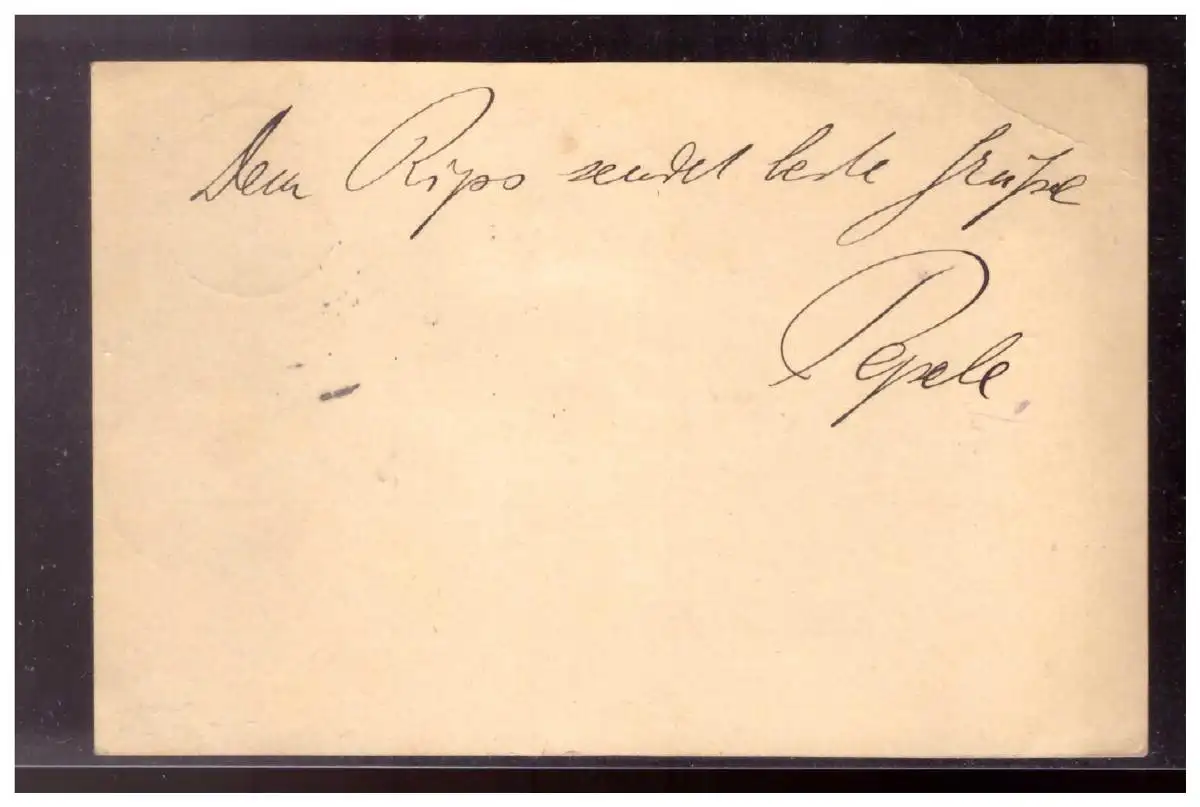 Dem Rips sendet beste Grüße
Pepele